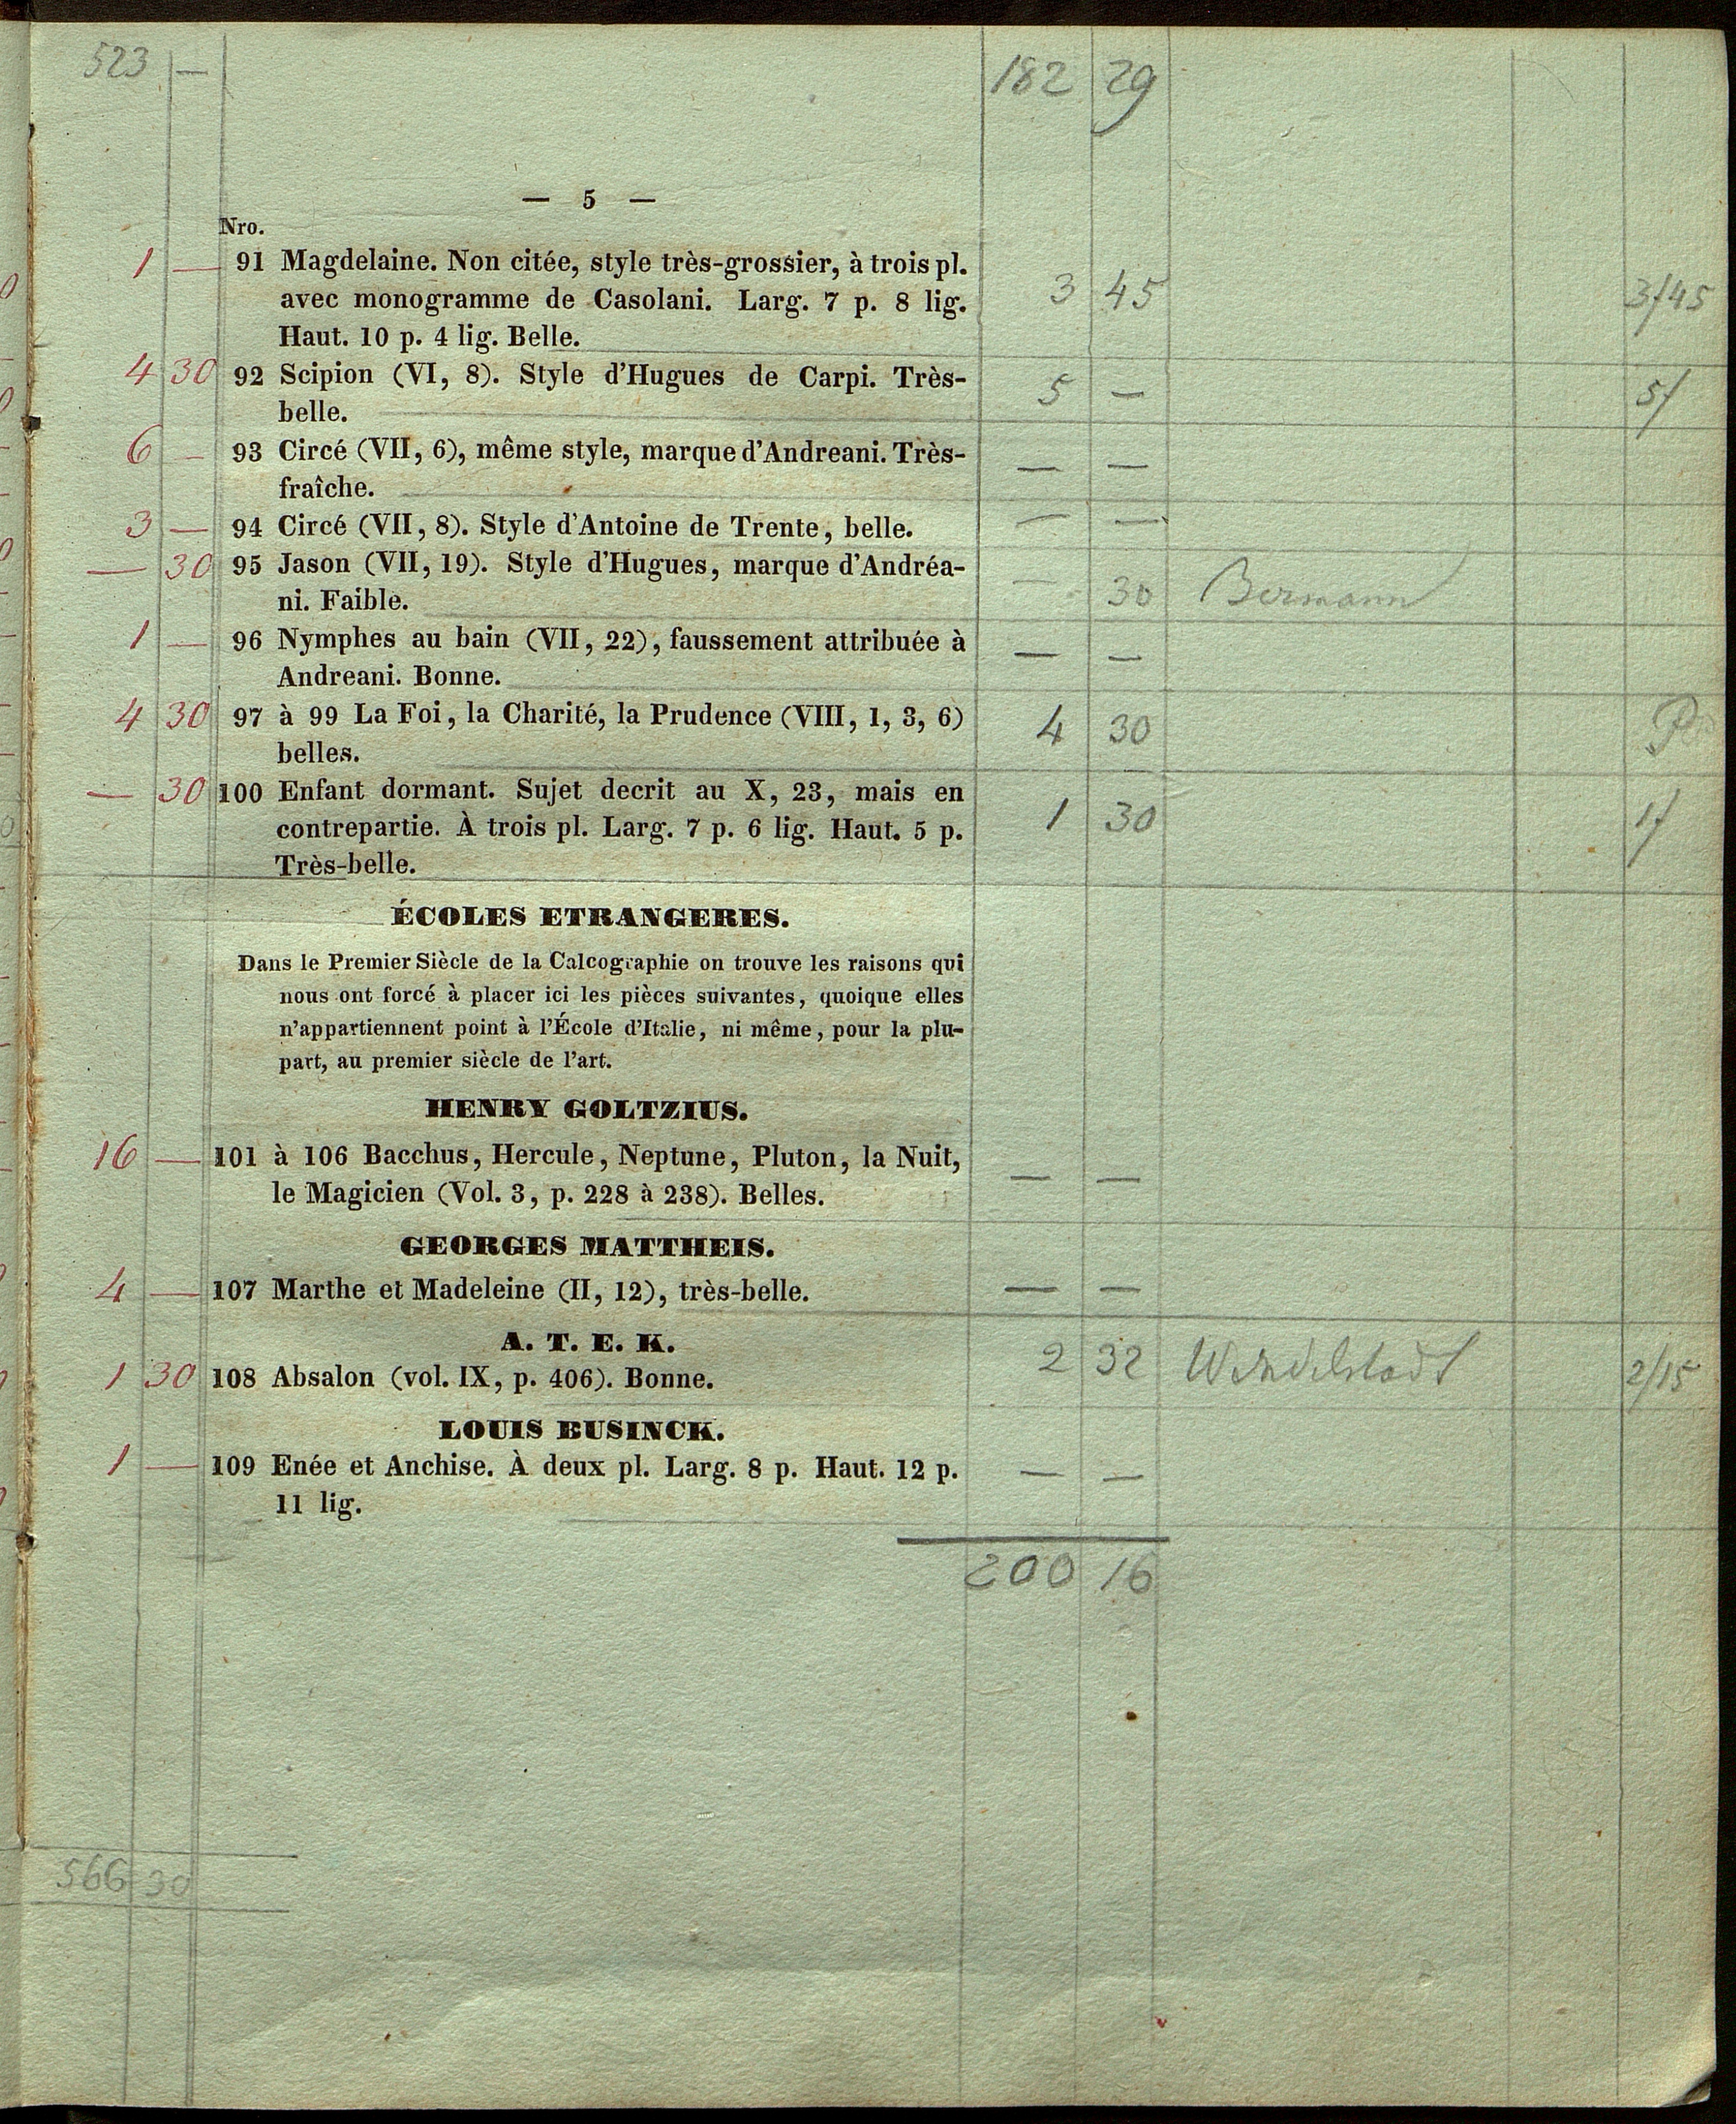 523 — 182 29
— 5 —
Nro.
1 — 91 Magdelaine. Non citée, style très-grossier, à trois pl.
avec monogramme de Casolani. Larg. 7 p. 8 lig. 3 45 3/45
Haut. 10 p. 4 lig. Belle.
4 30 92 Scipion (VI, 8). Style d'Hugues de Carpi. Très- 5 — 5/
belle.
6 — 93 Circé (VII, 6), même style, marque d'Andreani. Très- — —
fraîche.
3 — 94 Circé (VII, 8). Style d'Antoine de Trente, belle. — —
— 30 95 Jason (VII, 19). Style d'Hugues, marque d'Andréa- — 30 Bermann
ni. Faible.
1 — 96 Nymphes au bain (VII, 22), faussement attribuée à — —
Andreani. Bonne.
4 30 97 à 99 La Foi, la Charité, la Prudence (VIII, 1, 3, 6) 4 30
belles.
— 30 100 Enfant dormant. Sujet decrit au X, 23, mais en
contrepartie. À trois pl. Larg. 7 p. 6 lig. Haut. 5 p. 1 30 1/
Très-belle.
ÉCOLES ETRANGERES.
Dans le Premier Siècle de la Calcographie on trouve les raisons qui
nous ont forcé à placer ici les pièces suivantes, quoique elles
n'appartiennent point à l'École d'Italie, ni même, pour la plu-
part, au premier siècle de l'art.
HENRY GOLTZIUS.
16 — 101 à 106 Bacchus, Hercule, Neptune, Pluton, la Nuit, — —
le Magicien (Vol. 3, p. 228 à 238). Belles.
GEORGES MATTHEIS.
4 — 107 Marthe et Madeleine (II, 12), très-belle. — —
A. T. E. K.
1 30 108 Absalon (vol. IX, p. 406). Bonne. 2 32 Wendelstadt 2/15
LOUIS BUSINCK.
1 — 109 Enée et Anchise. À deux pl. Larg. 8 p. Haut. 12 p. — —
11 lig.
200 16
566 30